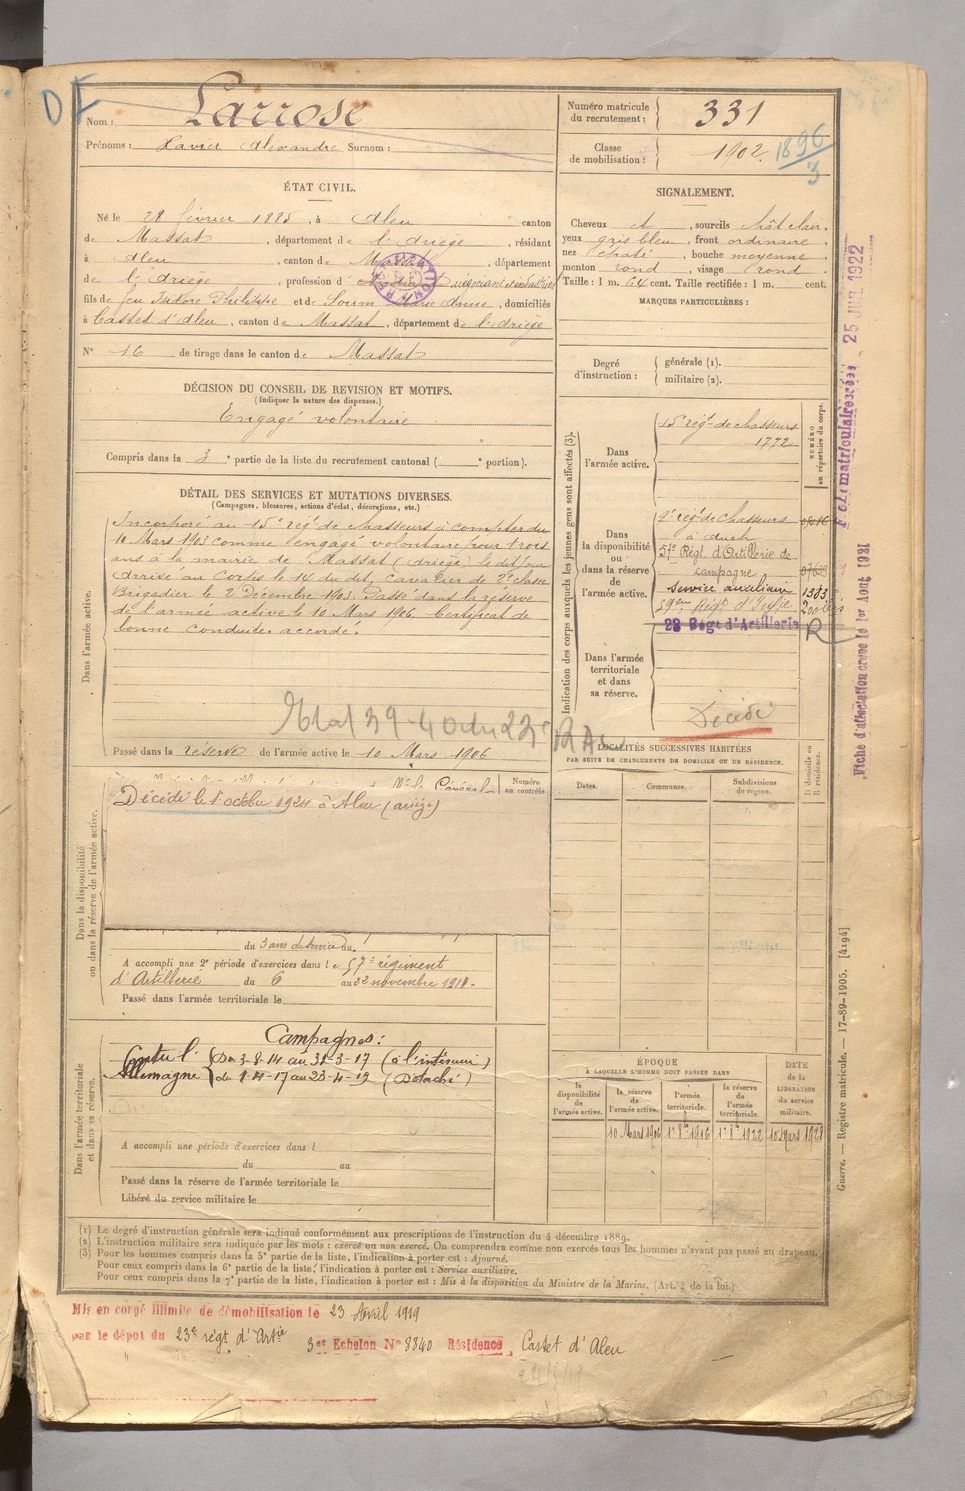 Nom : Larrose
Prénoms : Xavier Alexandre Surnom :
Numéro matricule du recrutement : 331
Classe de mobilisation : 1902.
1896
3
ÉTAT CIVIL.
Né le 28 février 1885, à Aleu canton
de Massat, département de l'Ariège, résidant
à Aleu, canton de Massat, département
de l'Ariège, profession d
fils de feu Isidore Philippe et de Soum Marie Anne, domiciliés
à Castet d'Aleu, canton de Massat, département de l'Ariège
N° 16 de tirage dans le canton de Massat
DÉCISION DU CONSEIL DE REVISION ET MOTIFS.
(Indiquer la nature des dispenses.)
Engagé volontaire
Compris dans la 3e partie de la liste du recrutement cantonal ( e portion).
DÉTAIL DES SERVICES ET MUTATIONS DIVERSES.
(Campagnes, blessures, actions d'éclat, décorations, etc.)
Dans l'armée active.
Incorporé au 15e régt de chasseurs à compter du
10 Mars 1903 comme engagé volontaire pour trois
ans à la mairie de Massat (Ariège) le dit jour
arrivé au Corps le 14 du dit, cavalier de 2e classe
Brigadier le 2 Décembre 1903. Passé dans la réserve
de l'armée active le 10 Mars 1906. Certificat de
bonne conduite accordé.
Passé dans la réserve de l'armée active le 10 Mars 1906
Dans la disponibilité
ou dans la réserve de l'armée active.
Numéro au contrôle
Décédé le 1er octobre 1924 à Aleu (ariège)
du 3 ans de service au
A accompli une 2e période d'exercices dans l e 57e régiment
d'Artillerie du 6 au 22 novembre 1911.
Passé dans l'armée territoriale le
Dans l'armée territoriale
et dans sa réserve.
Campagnes :
Contre l' Du 3-8-14 au 31-3-17 (à l'intérieur)
Allemagne du 1-4-17 au 23-4-19 (Détaché)
A accompli une période d'exercices dans l
du au
Passé dans la réserve de l'armée territoriale le
Libéré du service militaire le
SIGNALEMENT.
Cheveux et, sourcils chât clair,
yeux gris bleu, front ordinaire,
nez, bouche moyenne
menton rond, visage rond
Taille : 1 m. 64 cent. Taille rectifiée : 1 m. cent.
MARQUES PARTICULIÈRES :
Degré d'instruction : générale (1).
militaire (2).
Indication des corps auxquels les jeunes gens sont affectés (3).
NUMÉRO au répertoire du corps.
Dans l'armée active.
15e régt de chasseurs
1772
Dans la disponibilité ou dans la réserve de l'armée active.
9e régt de Chasseurs
à Auch
57e Régt d'Artillerie de
campagne
Service auxiliaire 1383
59e Régt d'Infie 200 bis
23 Régt d'Artillerie R
Dans l'armée territoriale et dans sa réserve.
Décédé
LOCALITÉS SUCCESSIVES HABITÉES
PAR SUITE DE CHANGEMENTS DE DOMICILE OU DE RÉSIDENCE.
D domicile ou R résidence.
Dates. Communes. Subdivisions de région.
ÉPOQUE
À LAQUELLE L'HOMME DOIT PASSER DANS
DATE de la LIBÉRATION du service militaire.
la disponibilité de l'armée active. la réserve de l'armée active. l'armée territoriale. la réserve de l'armée territoriale.
10 Mars 1906 1er 8bre 1916 1er 8bre 1922 10 Mars 1928
Fiche matriculaire créée 25 JUIL 1922
Fiche d'affectation créée le 1er Août 1921
Guerre. — Registre matricule. — 17-89-1905. [4194]
(1) Le degré d'instruction générale sera indiqué conformément aux prescriptions de l'instruction du 4 décembre 1889.
(2) L'instruction militaire sera indiquée par les mots : exercé ou non exercé. On comprendra comme non exercés tous les hommes n'ayant pas passé au drapeau.
(3) Pour les hommes compris dans la 5e partie de la liste, l'indication à porter est : Ajourné.
Pour ceux compris dans la 6e partie de la liste, l'indication à porter est : Service auxiliaire.
Pour ceux compris dans la 7e partie de la liste, l'indication à porter est : Mis à la disposition du Ministre de la Marine. (Art. 4 de la loi.)
Mis en congé illimité de démobilisation le 23 Avril 1919
par le dépôt du 23e régt d'Artie 3er Echelon N° 8840 Résidence, Castet d'Aleu